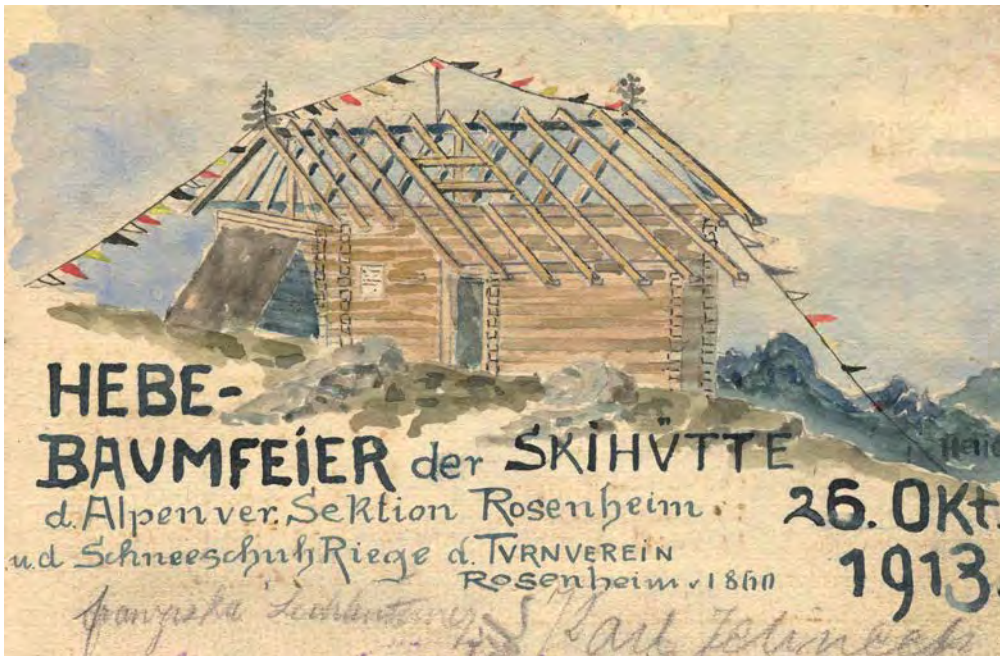 HEBE-
BAVMFEIER der SKIHÜTTE
d. Alpenver. Sektion Rosenheim
u.d Schneeschuh Riege d. TVRNVEREIN
Rosenheim v. 1860
26. OKt.
1913.
Karl